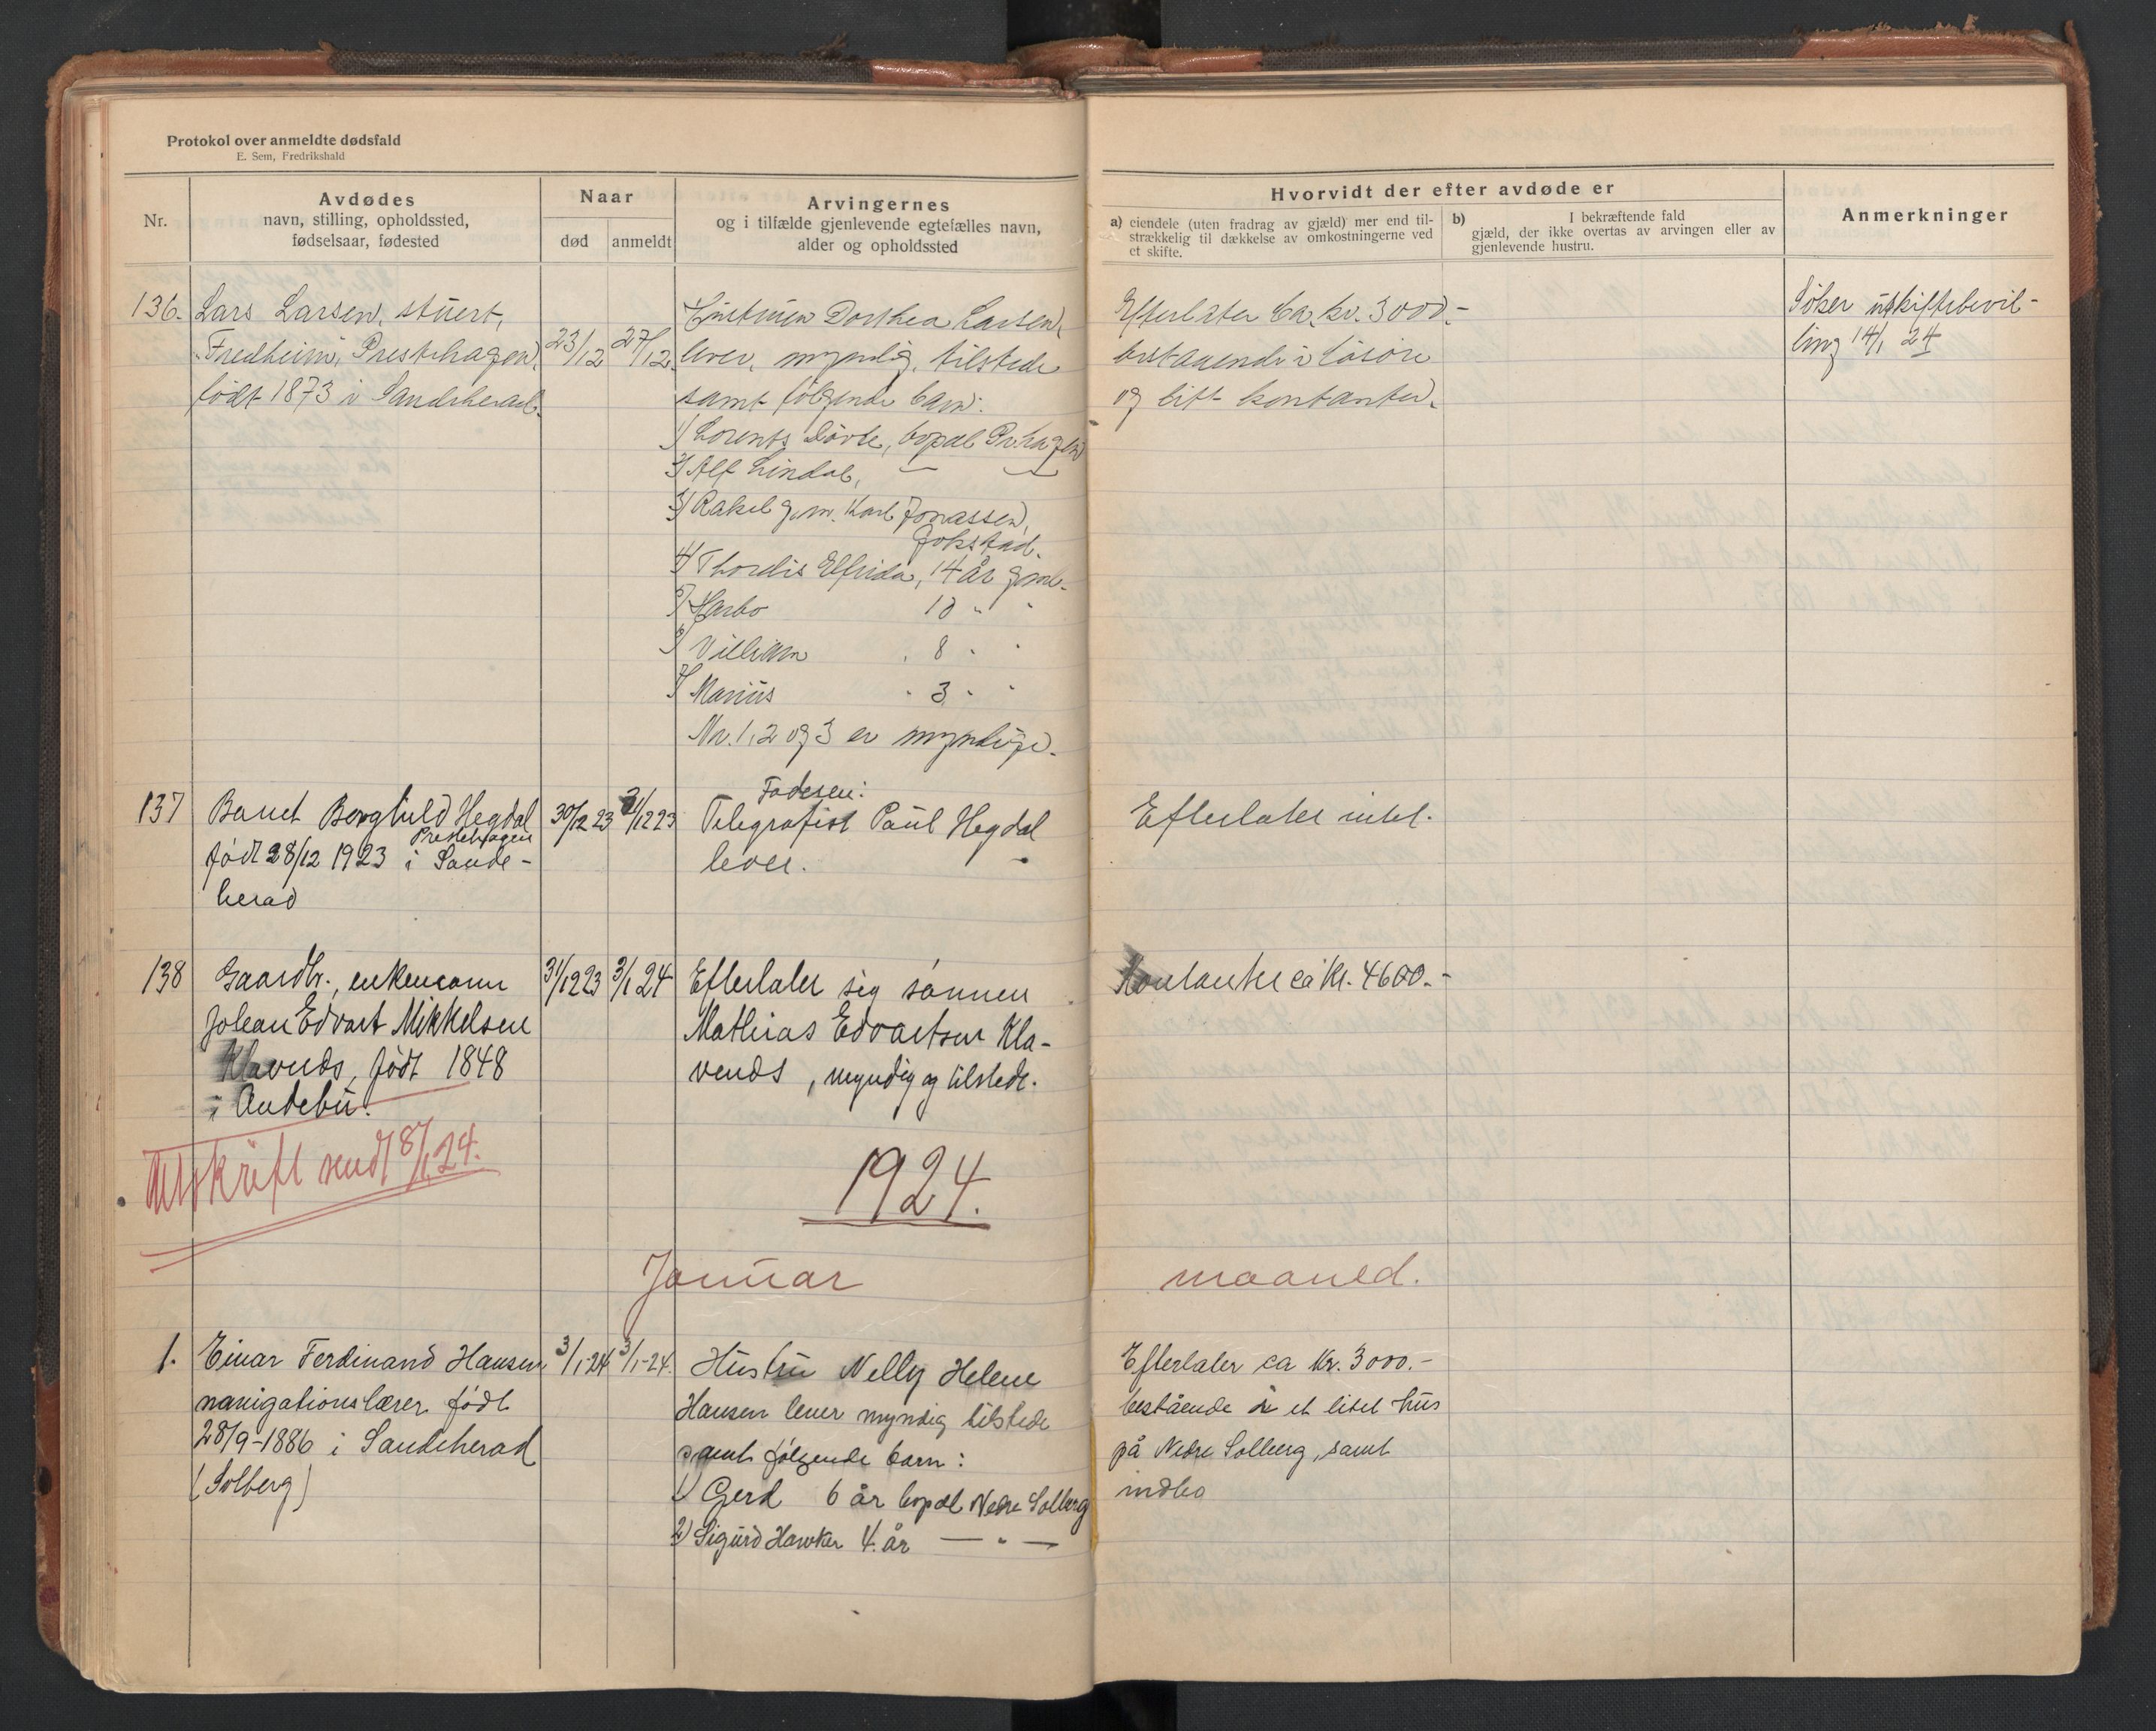 Protokol over anmeldte dødsfald
E. Sem, Fredrikshald
Nr.
Avdødes
navn, stilling, opholdssted,
fødselsaar, fødested
Naar
død
anmeldt
Arvingernes
og i tilfælde gjenlevende egtefælles navn,
alder og opholdssted
Hvorvidt der efter avdøde er
a) eiendele (uten fradrag av gjæld) mer end til-
strækkelig til dækkelse av omkostningerne ved
et skifte.
b) I bekræftende fald
gjæld, der ikke overtas av arvingen eller av
gjenlevende hustru.
Anmerkninger
136.
Lars Larsen, stuert,
Fredheim, Prestehagen,
født 1873 i Sandeherad.
23/12
27/12.
Hustruen Dorthea Larsen,
lever, myndig, tilstede
samt følgende barn:
1) Lorents, bopæl Pr.hagen
2) Alf Lindal, — —
3) Rakel g.m. Karl Jonassen,
Jokstad.
4) Thordis Elfrida, 14 år gml.
5) Harbo 10 " "
6) Villiam " 8 " "
7) Marius " 3 " "
Nr. 1, 2 og 3 er myndige.
Efterlater ca. kr. 3000.-
bestaaende i løsøre
og litt kontanter.
Søker uskiftebevil-
ling 14/1 24
137
Barnet Borghild Hegdal
Prestehagen
født 28/12 1923 i Sande-
herad
30/12 23
31/12 23
Faderen:
Telegrafist Paul Hegdal
lever.
Efterlater intet.
138
Gaardbr., enkemann
Johan Edvart Mikkelsen
Klavenes, født 1848
i Andebu.
31/12 23
3/1 24
Efterlater sig sønnen
Mathias Edvartsen Kla-
venes, myndig og tilstede.
Kontanter ca kr. 4600.-
Utskrift sendt 8/1 24.
1924.
Januar maaned.
1.
Einar Ferdinand Hansen
navigationslærer født
28/9-1886 i Sandeherad
(Solberg)
3/1-24
3/1-24.
Hustru Nelly Helene
Hansen lever myndig tilstede
samt følgende barn:
1) Gerd 6 år bopæl Nedre Solberg
2) Sigurd Hawker 4 år — " —
Efterlater ca kr. 3000.-
bestående i et litet hus
på Nedre Solberg, samt
indbo